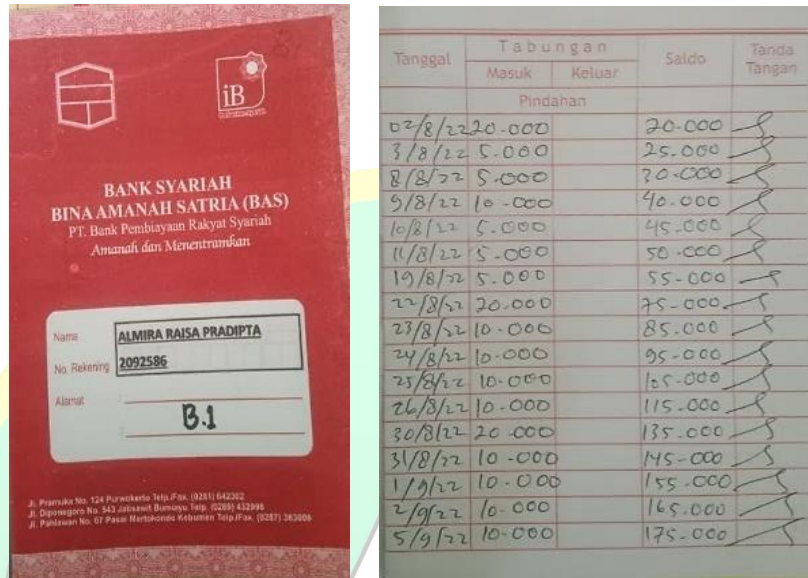 iB
BANK SYARIAH
BINA AMANAH SATRIA (BAS)
PT. Bank Pembiayaan Rakyat Syariah
Amanah dan Menentramkan
Nama ALMIRA RAISA PRADIPTA
No. Rekening 2092586
Alamat
B.1
Jl. Pramuka No. 124 Purwokerto Telp./Fax. (0281) 642302
Jl. Diponegoro No. 543 Jatisawit Bumiayu Telp. (0289) 432998
Jl. Pahlawan No. 07 Pasar Mertokondo Kebumen Telp./Fax. (0287)
Tanggal Tabungan Saldo Tanda Tangan
Masuk Keluar
Pindahan
02/8/22 20.000 20.000
3/8/22 5.000 25.000
8/8/22 5.000 30.000
9/8/22 10.000 40.000
10/8/22 5.000 45.000
11/8/22 5.000 50.000
19/8/22 5.000 55.000
22/8/22 20.000 75.000
23/8/22 10.000 85.000
24/8/22 10.000 95.000
25/8/22 10.000 105.000
26/8/22 10.000 115.000
30/8/22 20.000 135.000
31/8/22 10.000 145.000
1/9/22 10.000 155.000
2/9/22 10.000 165.000
5/9/22 10.000 175.000